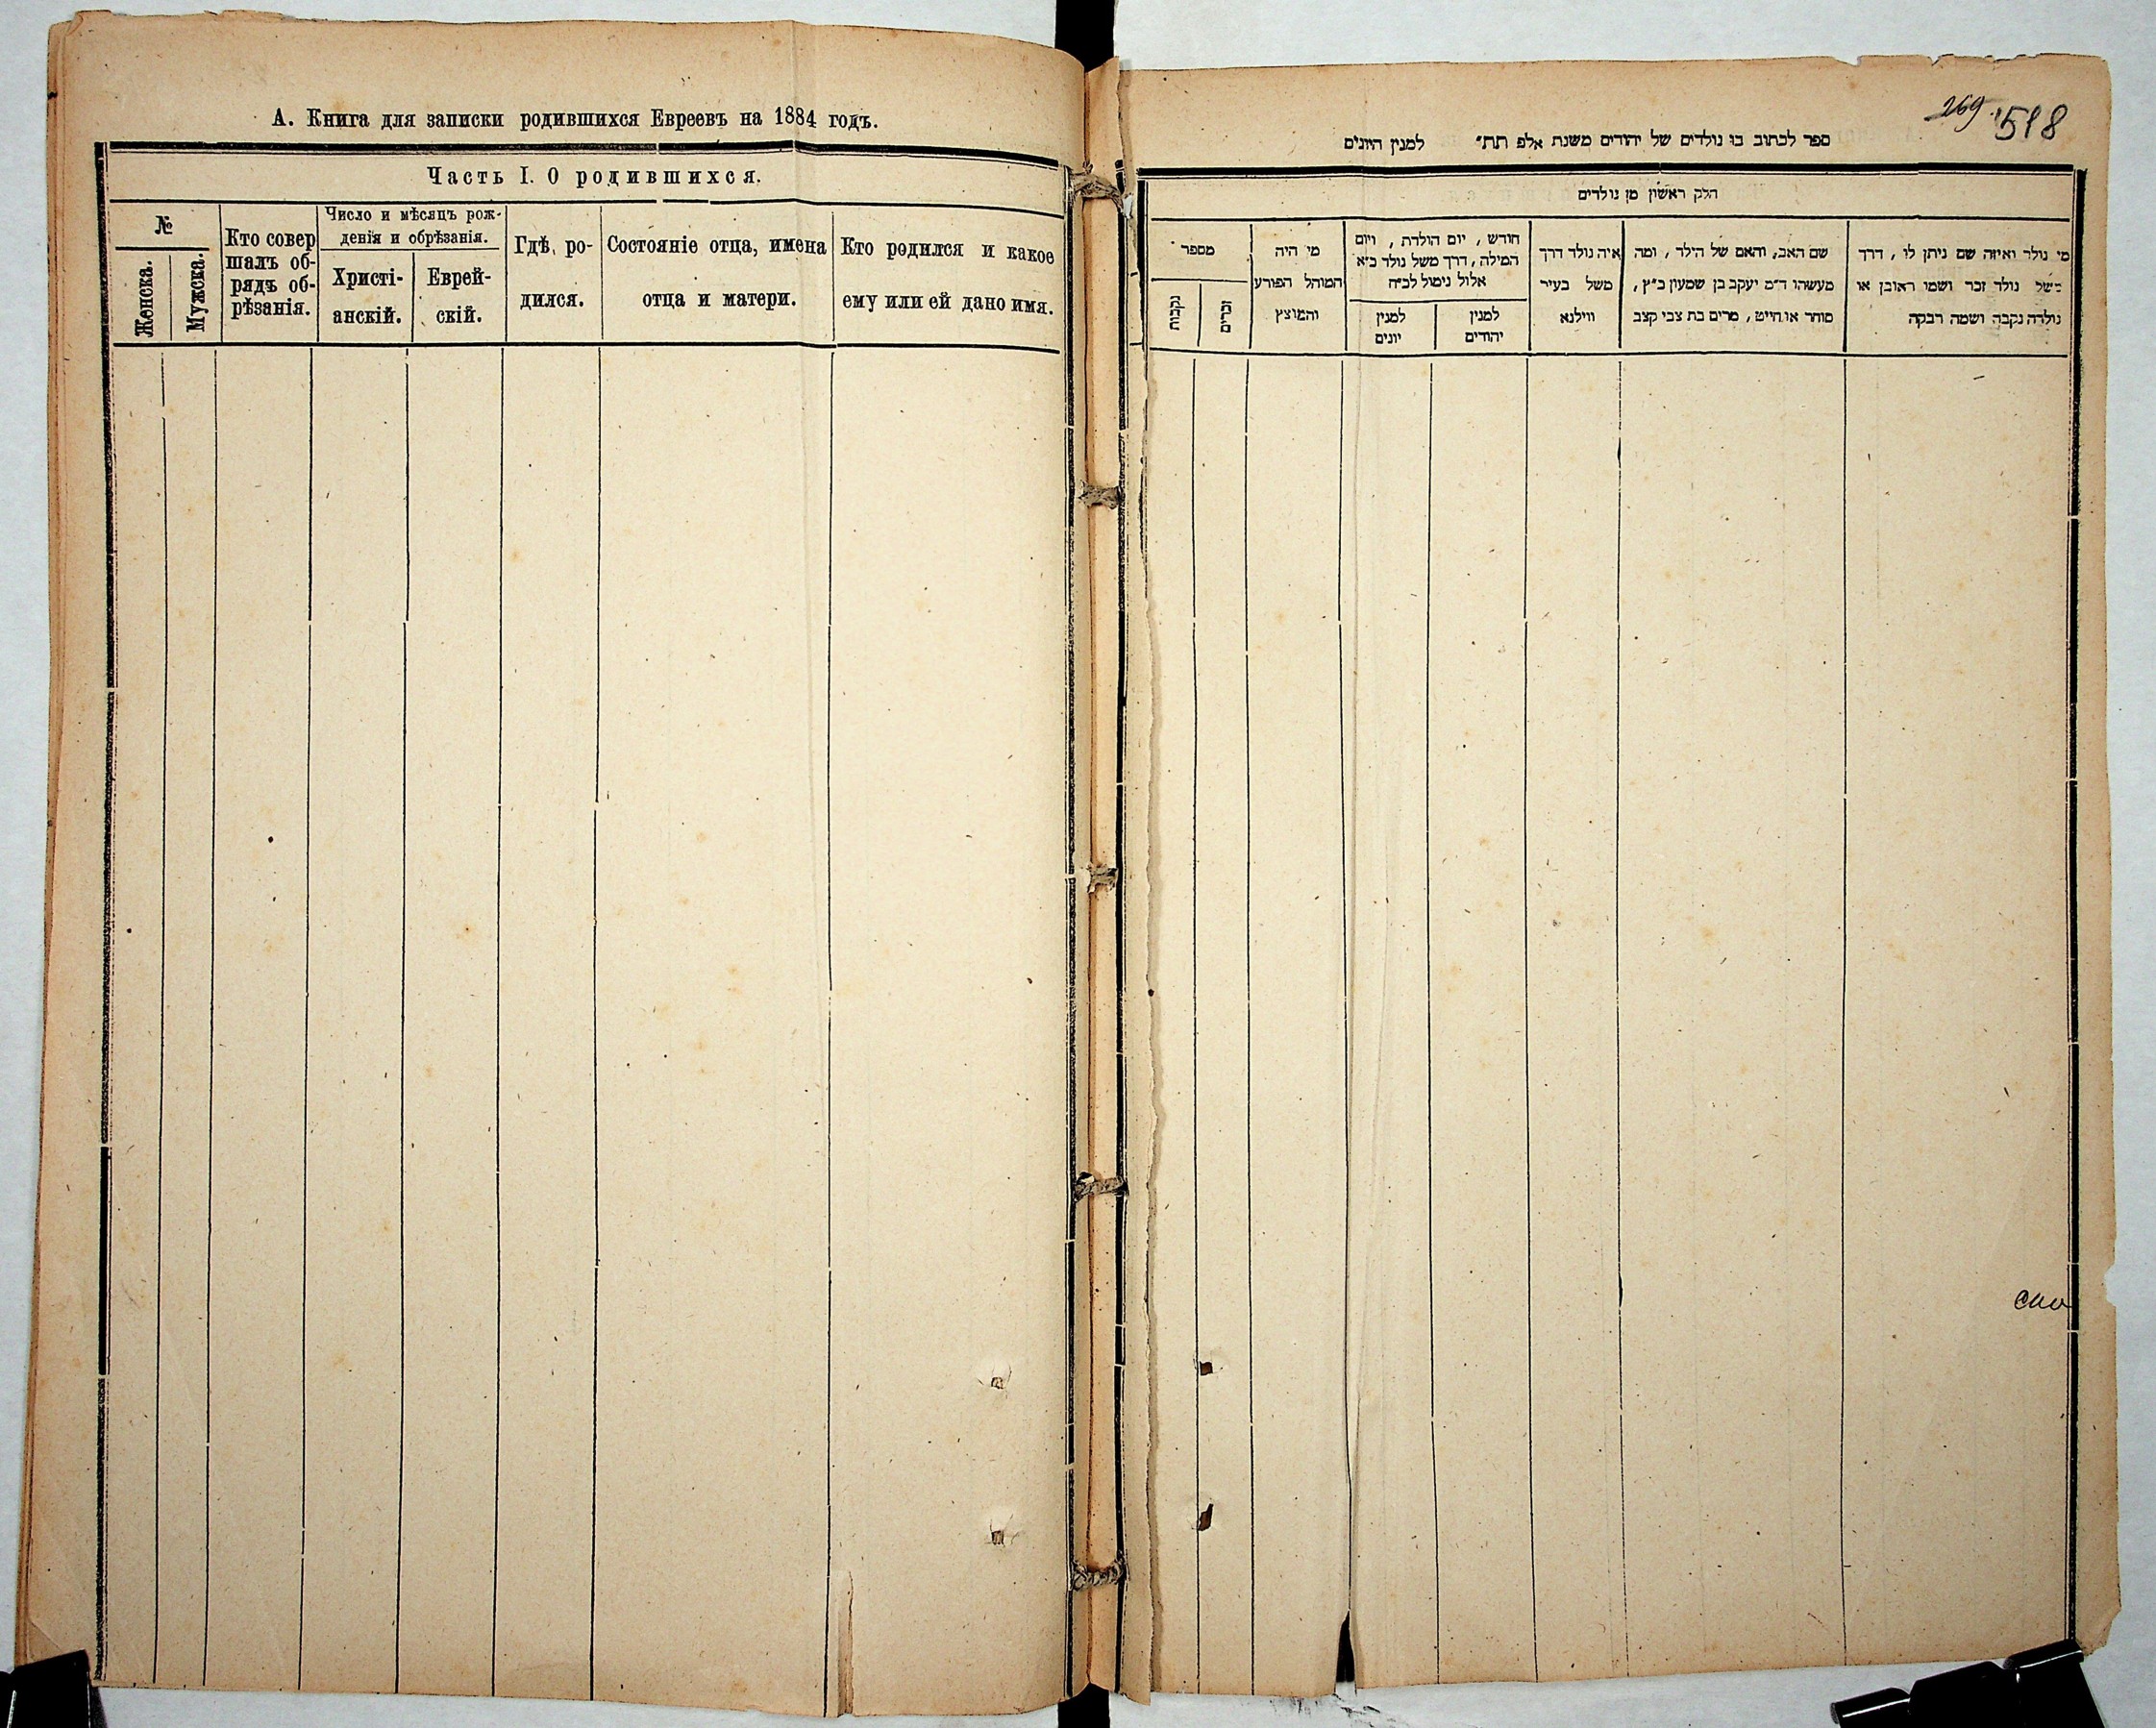 А. Книга для записки родившихся Евреевъ на 1884 годъ.
Часть I. О родившихся.
№
Женска.
Мужска.
Кто совер
шалъ об-
рядъ об-
рѣзанія.
Число и мѣсяцъ рож-
денія и обрѣзанія.
Христі-
анскій.
Еврей-
скій.
Гдѣ, ро-
дился.
Состояніе отца, имена
отца и матери.
Кто родился и какое
ему или ей дано имя.
269
518
ספר לכתוב בו נולדים של יהודים משנת אלפ תת״ למנין היונים
חלק ראשון מן נולדים
מי נולד ואיזה שם ניתן לו, דרך
משל נולד זכר ושמו ראובן או
נולדה נקבה ושמה רבקה
שם האב, והאם של הילד, ומה
מעשהו ד״מ יעקב בן שמעון כ״ץ,
סוחר או חייט, מרים בת צבי קצב
איה נולד דרך
משל בעיר
ווילנא
חודש, יום הולדת, ויום
המילה, דרך משל נולד כ״א
אלול נימול לכ״ח
למנין
יהודים
למנין
יונים
מי היה
המוהל הפורע
והמוצץ
מספר
זכרים
נקבות